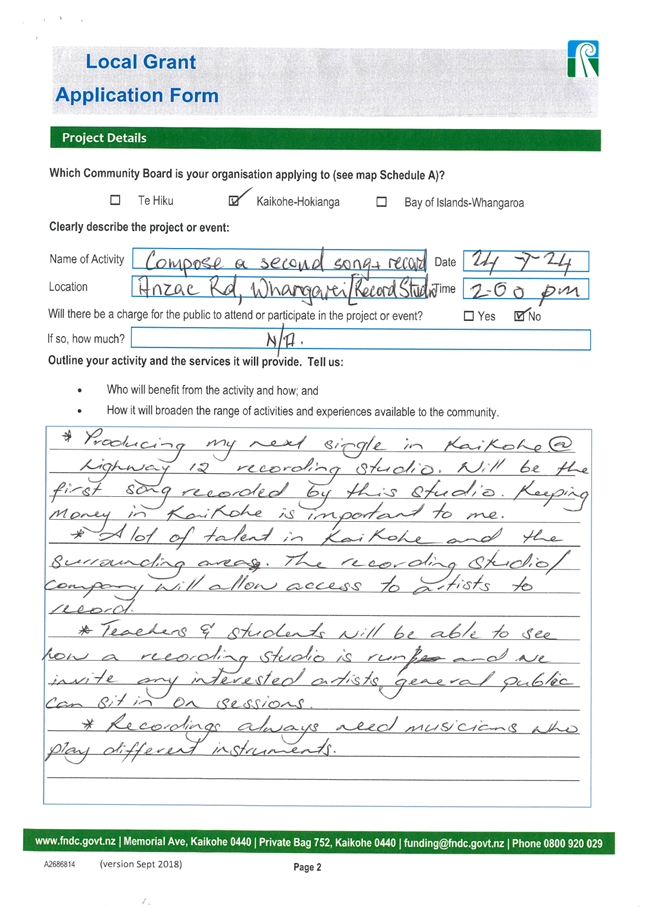 Local Grant
Application Form
Project Details
Which Community Board is your organisation applying to (see map Schedule A)?
Te Hiku Kaikohe-Hokianga Bay of Islands-Whangaroa
Clearly describe the project or event:
Name of Activity Compose a second song + record Date 24-7-24
Location Anzac Rd, Whangarei [Record Studio Time 2-00 pm
Will there be a charge for the public to attend or participate in the project or event? Yes No
If so, how much? N/A.
Outline your activity and the services it will provide. Tell us:
• Who will benefit from the activity and how; and
• How it will broaden the range of activities and experiences available to the community.
* Producing my next single in Kaikohe @
Highway 12 recording studio. Will be the
first song recorded by this studio. Keeping
money in Kaikohe is important to me.
* A lot of talent in Kaikohe and the
surrounding areas. The recording studio/
company will allow access to artists to
record.
* Teachers & students will be able to see
how a recording studio is run and we
invite any interested artists, general public
can sit in on sessions.
* Recordings always need musicians who
play different instruments.
www.fndc.govt.nz | Memorial Ave, Kaikohe 0440 | Private Bag 752, Kaikohe 0440 | funding@fndc.govt.nz | Phone 0800 920 029
A2686814 (version Sept 2018) Page 2